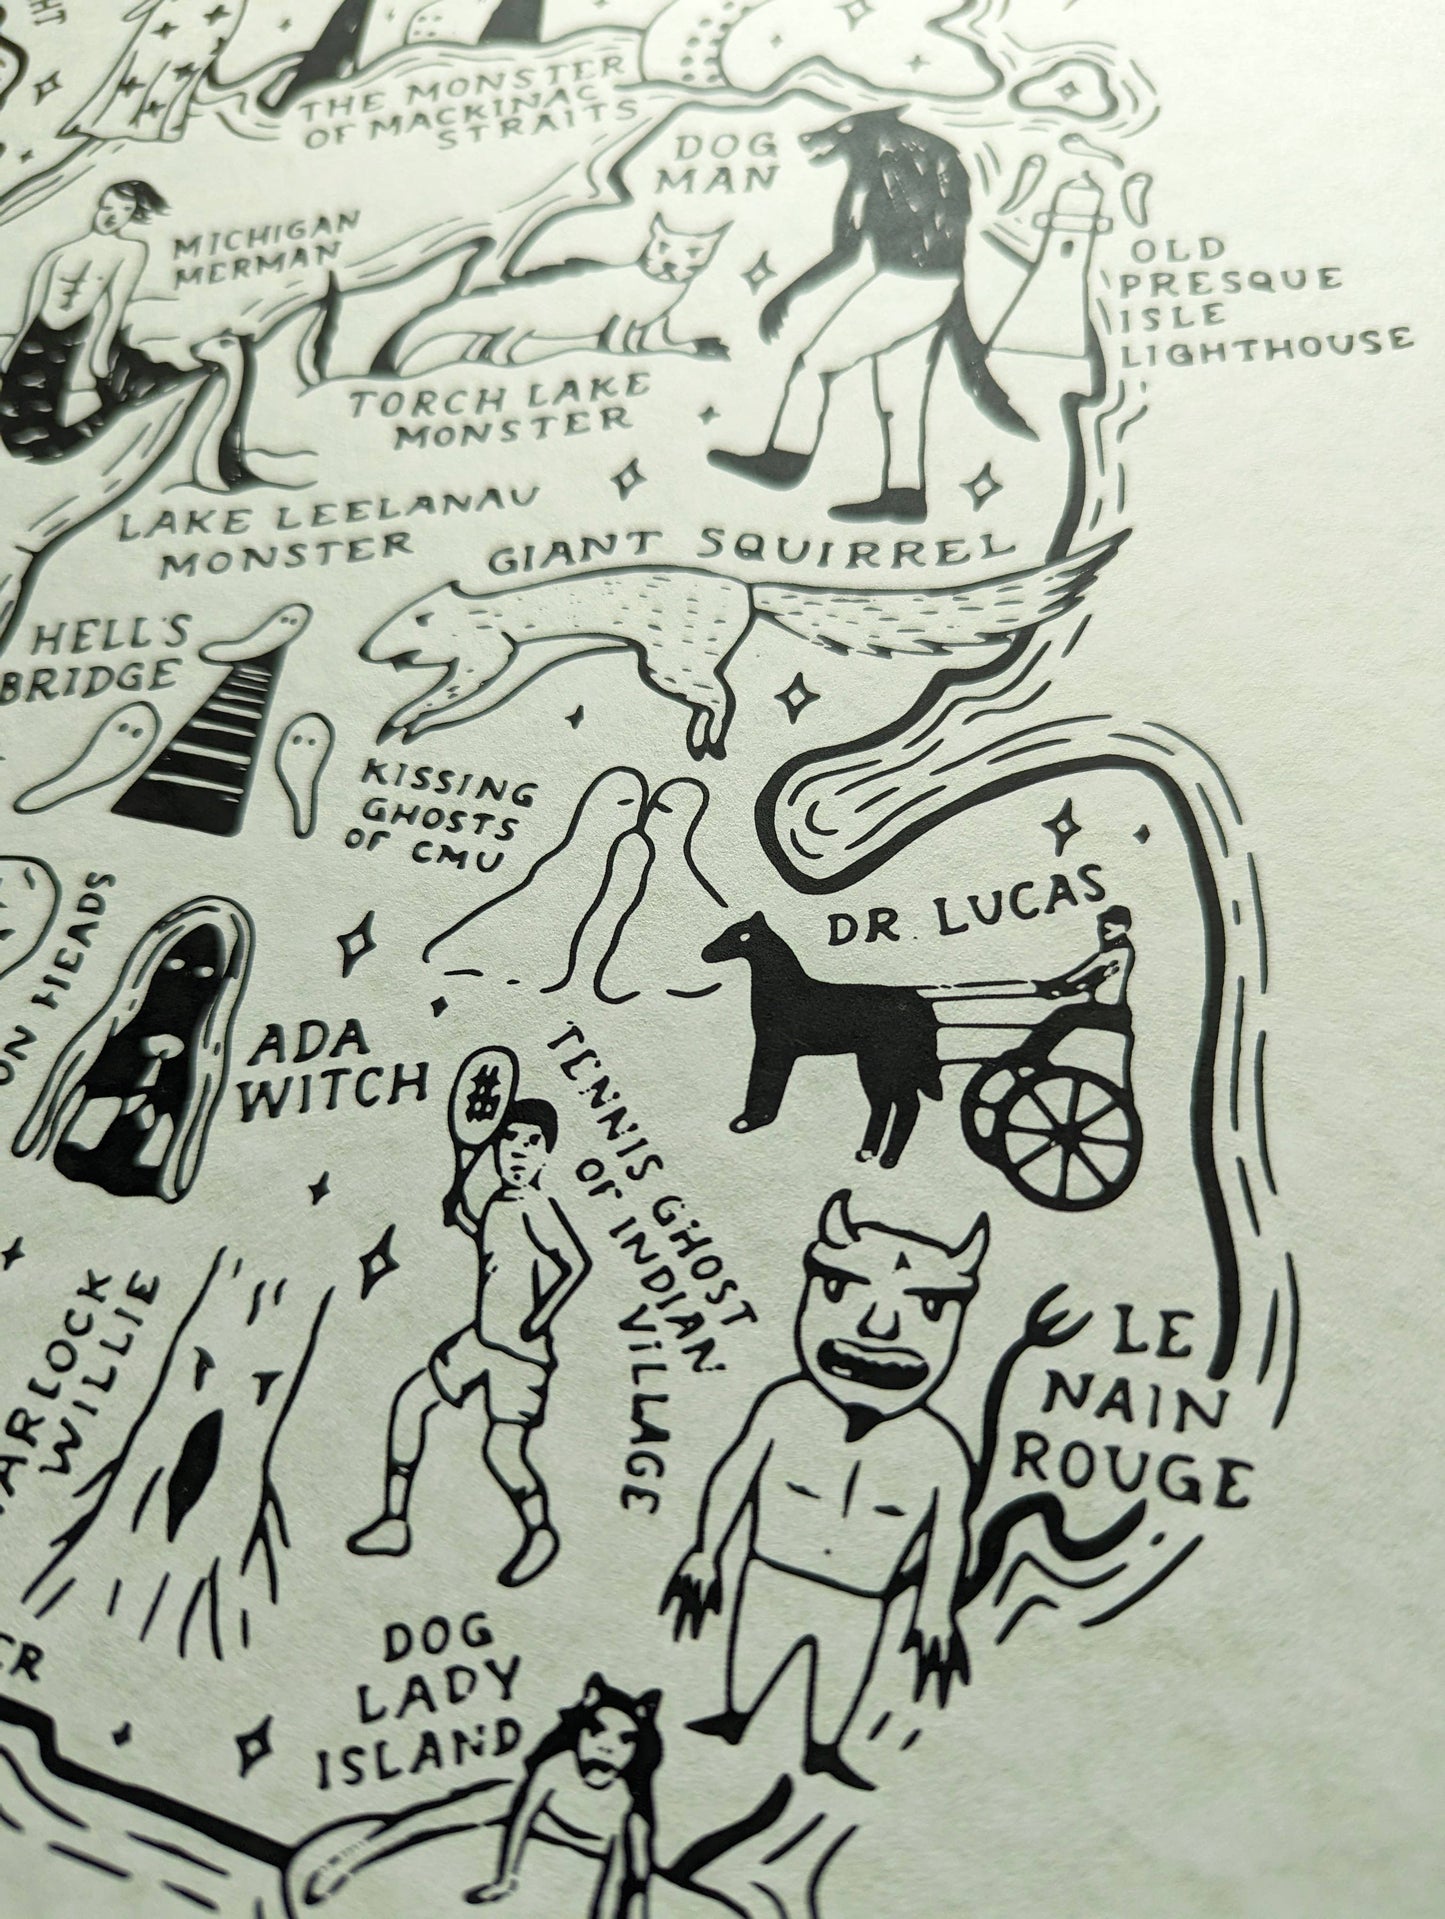 THE MONSTER
OF MACKINAC
STRAITS
DOG
MAN
MICHIGAN
MERMAN
OLD
PRESQUE
ISLE
LIGHTHOUSE
TORCH LAKE
MONSTER
LAKE LEELANAU
MONSTER
GIANT SQUIRREL
HELL'S
BRIDGE
KISSING
GHOSTS
OF CMU
DR. LUCAS
ON HEADS
ADA
WITCH
TENNIS GHOST
OF INDIAN
VILLAGE
ARLOCK
WILLIE
LE
NAIN
ROUGE
DOG
LADY
ISLAND